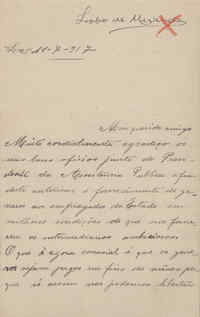 Lisboa de
10-7-917
Meu querido amigo
Muito cordialmente agradeço os
seus bons oficios junto do Presi-
dente da Assistencia Publica a fim
deste autorisar o fornecimento de ge-
neros aos empregados do Estado em
melhores condições do que nos forne-
cem os intermediarios
O que é agora essencial é que os gene-
ros sejam pagos no fim do mez por-
que só assim nos podemos libertar